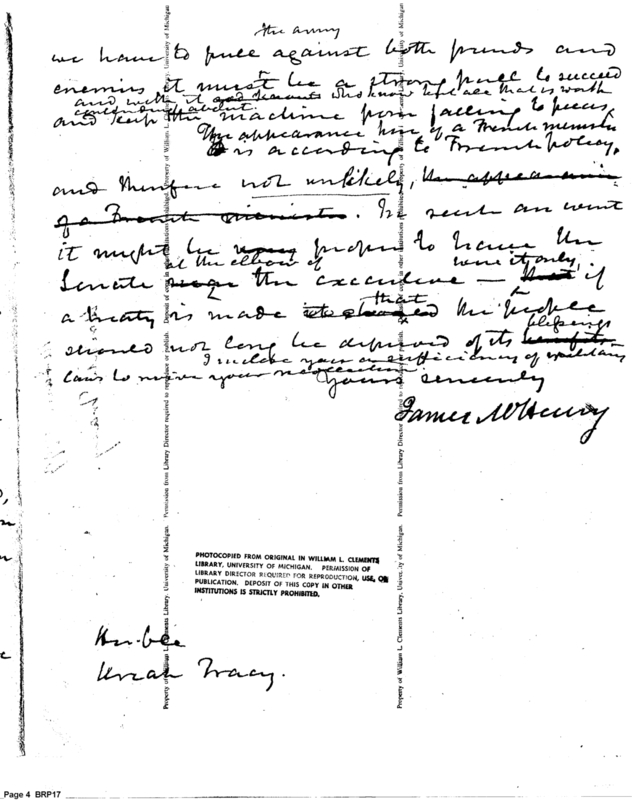 the army
we have to pull against both friends and
enemies it must be a strong pull to succeed
and with it good servants who know what is worth
and keep the machine from falling to pieces,
The appearance here of a French minister
is according to French policy,
and therefore not unlikely, the appearance
of a French minister. In such an event
it might be very proper to have the
at the elbow of were it only
Senate near the executive — that if
a treaty is made that the people
should not long be deprived of its benefits
blessings
I inclose you a sufficiency of military
laws to your recollection
Yours sincerely
James McHenry
PHOTOCOPIED FROM ORIGINAL IN WILLIAM L. CLEMENTS
LIBRARY, UNIVERSITY OF MICHIGAN. PERMISSION OF
LIBRARY DIRECTOR REQUIRED FOR REPRODUCTION, USE, OR
PUBLICATION. DEPOSIT OF THIS COPY IN OTHER
INSTITUTIONS IS STRICTLY PROHIBITED.
Honble
Uriah Tracy.
Property of William L. Clements Library, University of Michigan. Permission from Library Director required to reproduce or publish. Deposit of copy in other institutions prohibited.
Property of William L. Clements Library, University of Michigan. Permission from Library Director required to reproduce or publish. Deposit of copy in other institutions prohibited.
Page 4 BRP17